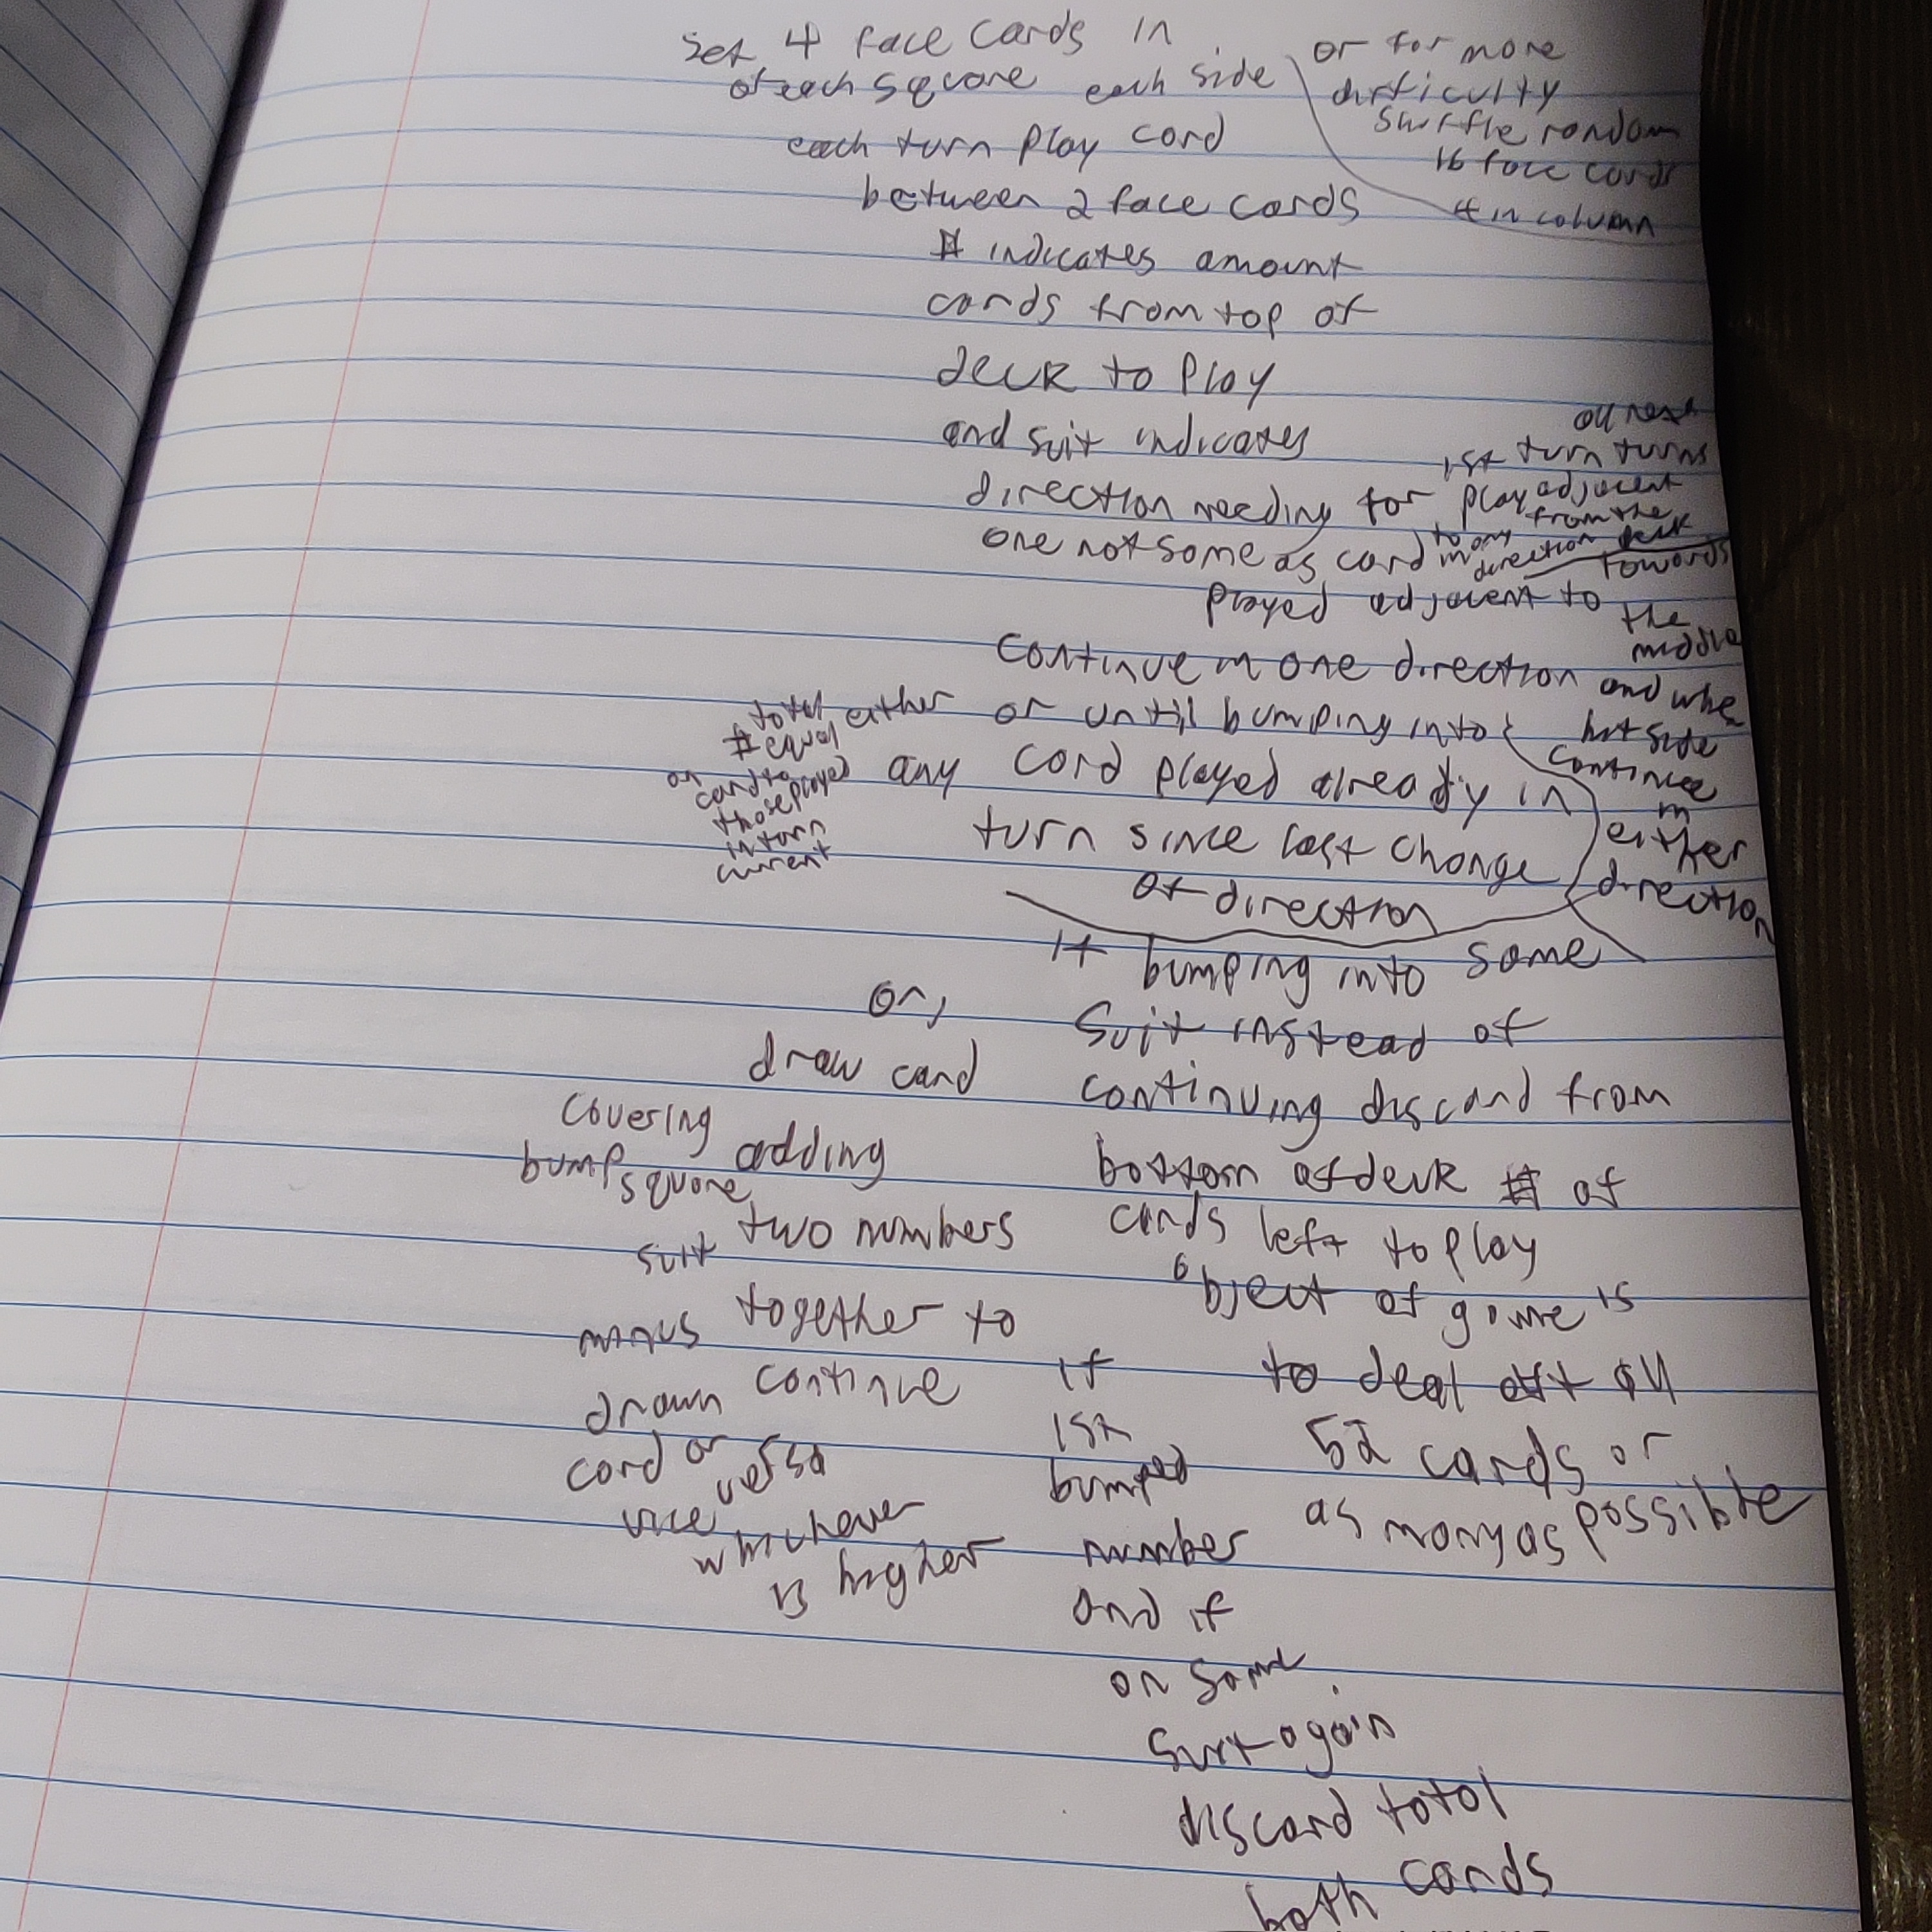 Set 4 face cards in
of each square each side
each turn play card
between 2 face cards
or for more
difficulty
shuffle random
16 face cards
4 in column
# indicates amount
cards from top of
deck to play
and suit indicates
direction needing for
one not same as card
played adjacent to
1st turn
all next
turns
play adjacent
to any
from the
in
direction
deck
towards
the
middle
and when
hit side
continue
in
either
direction
continue in one direction
either or until bumping into
any card played already in
turn since last change
of direction
total
# equal
on
card to
those played
in turn
current
If bumping into same
suit instead of
continuing discard from
bottom of deck # of
cards left to play
Object of game is
to deal off all
52 cards or
as many as possible
or,
draw card
covering
bump
square
adding
two numbers
together to
continue
suit
minus
drawn
card or
vice versa
whichever
is higher
if
1st
bumped
number
and if
on same
suit again
discard total
both cards